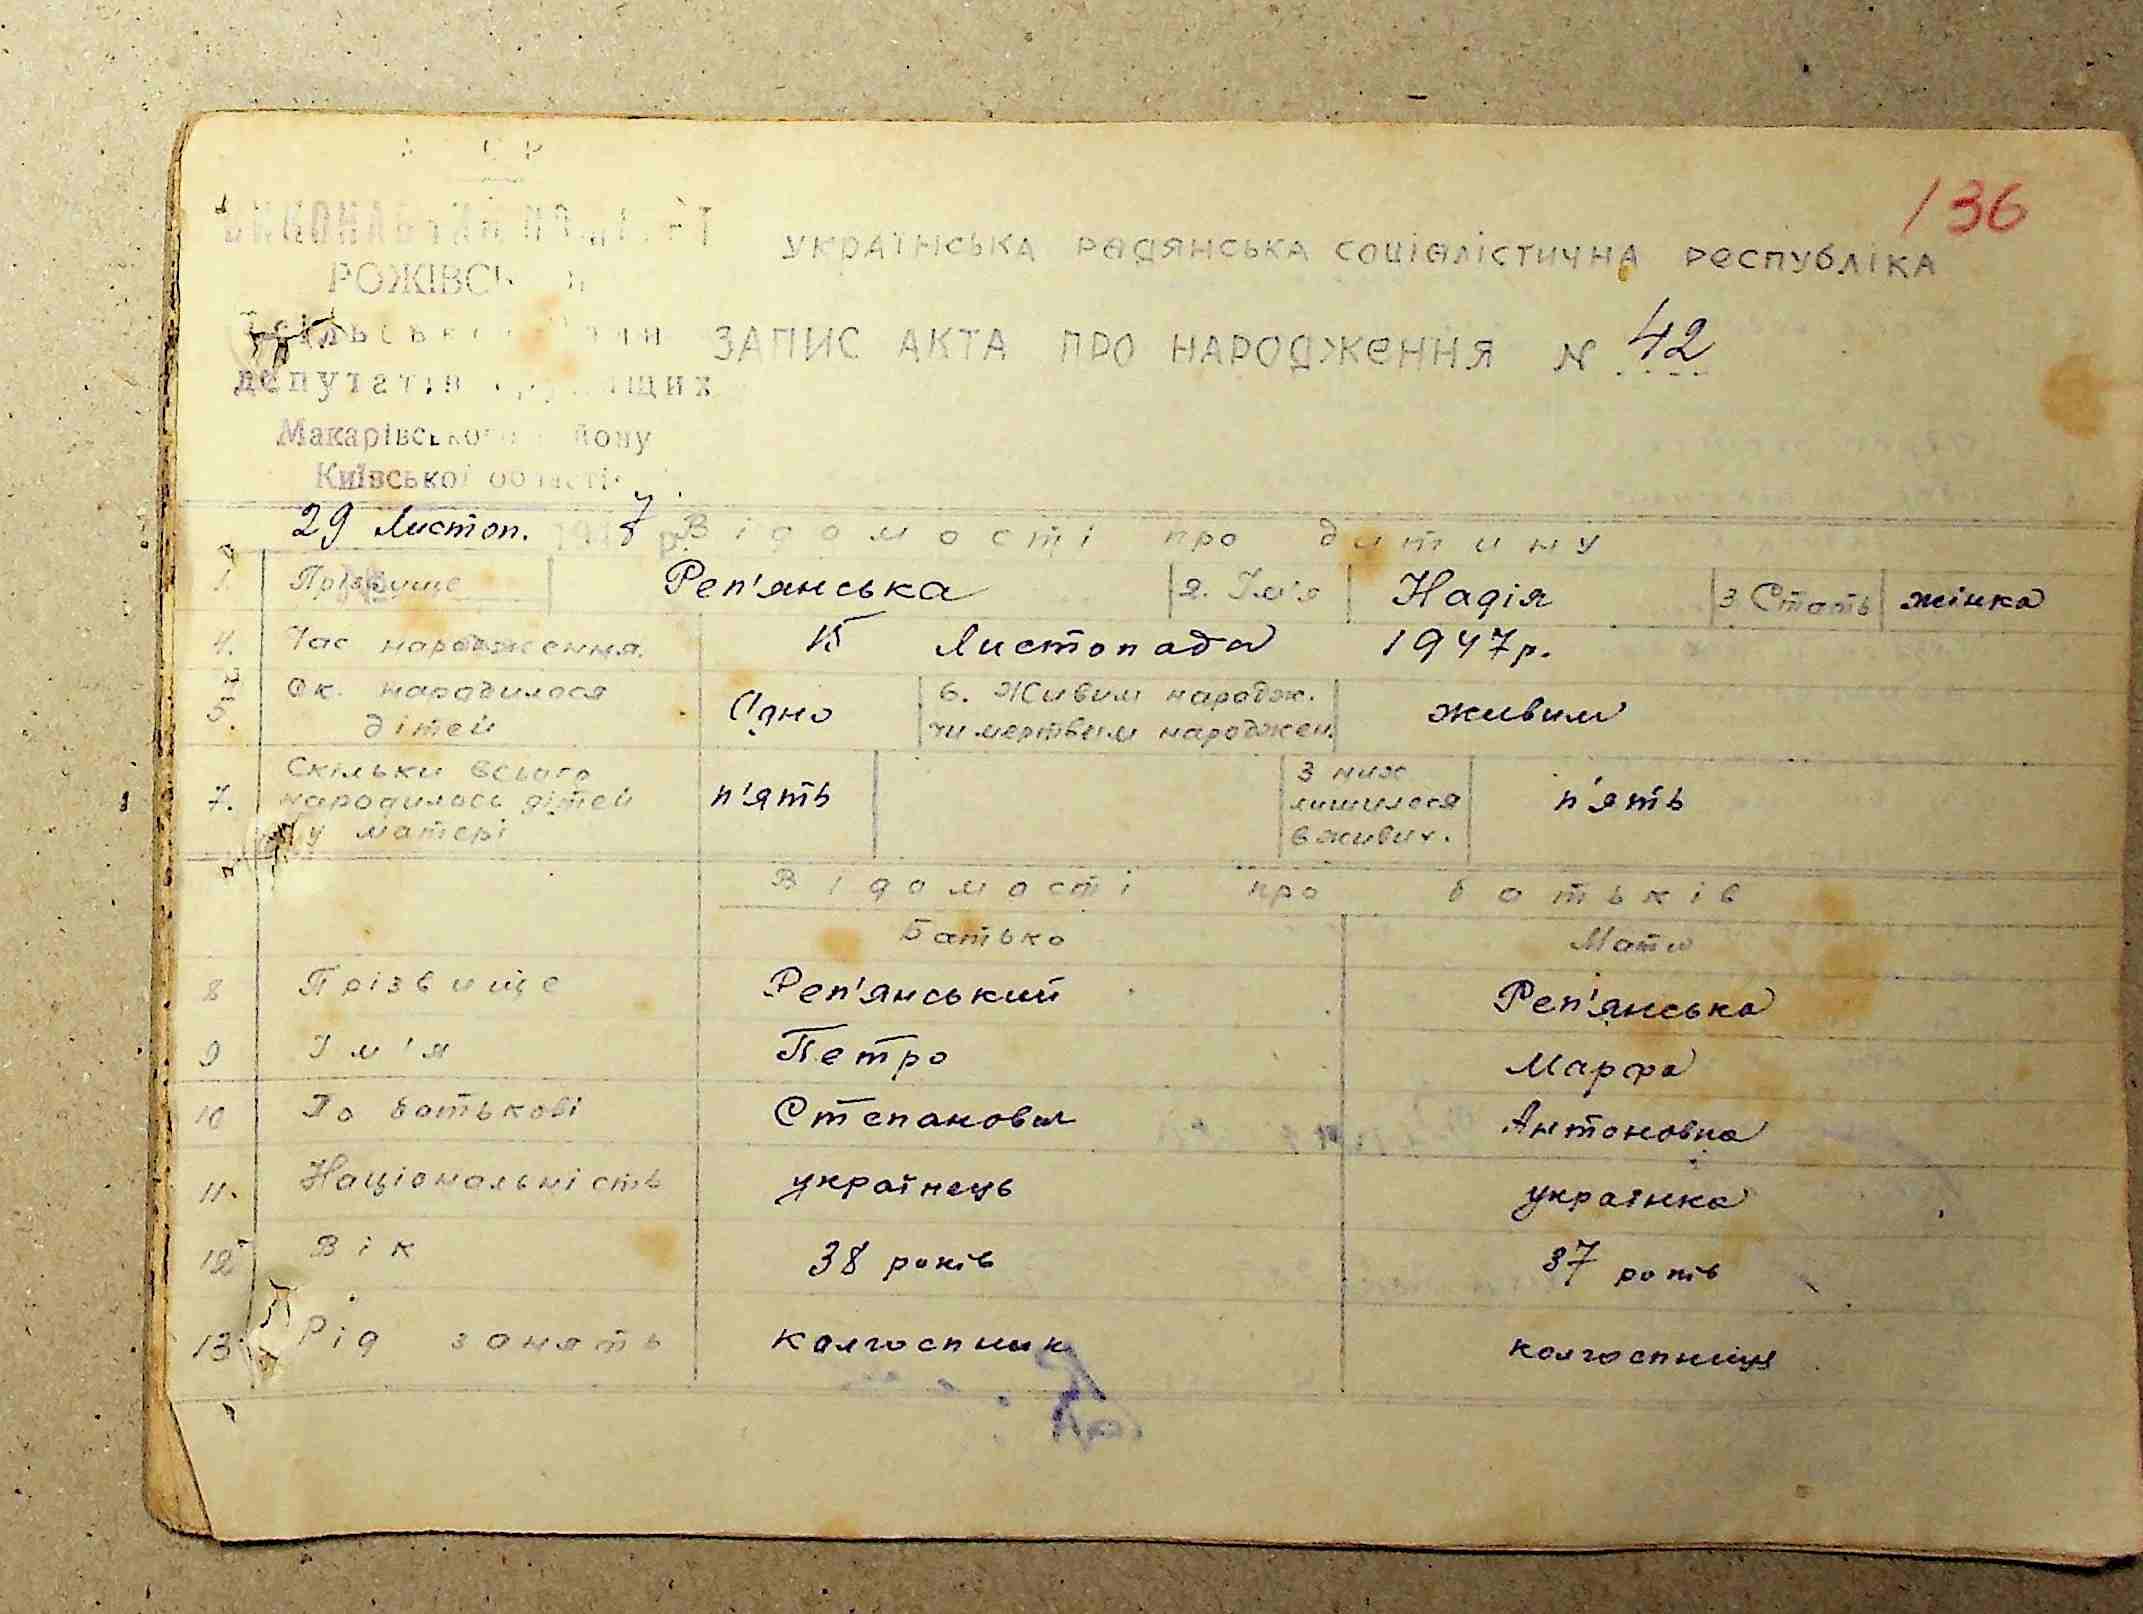 136
УКРАЇНСЬКА РАДЯНСЬКА СОЦІАЛІСТИЧНА РЕСПУБЛІКА
РОЖІВСЬ
ЗАПИС АКТА ПРО НАРОДЖЕННЯ N 42
депутатів
Макарівського
Київської області
29 Листоп. 1947 р. Відомості про дитину
1. Прізвище Реп'янська 2. Ім'я Надія 3 Стать жінка
4. Час народження. 15 Листопада 1947 р.
5. Ск. народилося дітей Одно 6. Живим народж. чи мертвим народжен. живим
7. Скільки всього народилось дітей у матері п'ять З них лишилося в живих. п'ять
Відомості про батьків
Батько Мати
8 Прізвище Реп'янський Реп'янська
9 Ім'я Петро Марфа
10 По батькові Степанович Антоновна
11. Національність українець українка
12 Вік 38 років 37 років
13. Рід занять колгоспник колгоспниця